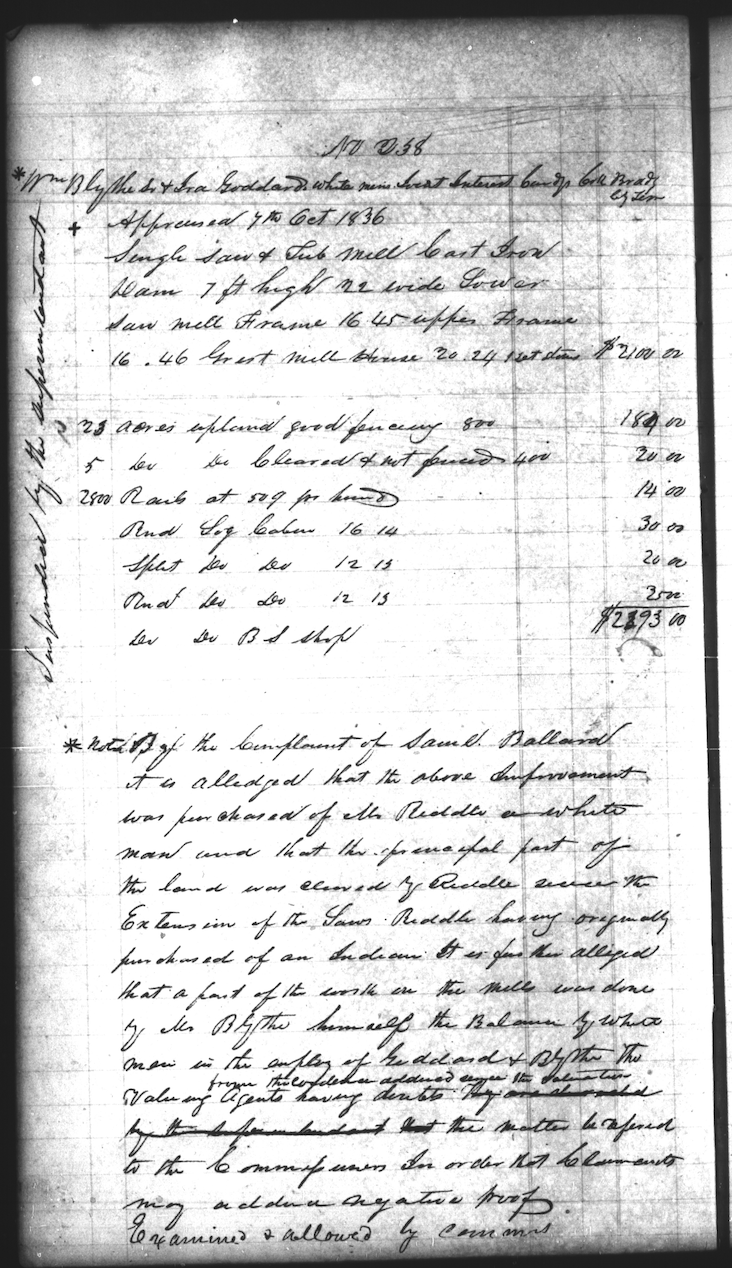 No 258
* Wm Blythe Sr & Ira Goddard white mens Joint Interest Candys Crk Bradly
Cy Tenn
+ Appraised 7th Oct 1836
Single Saw & Tub Mill Cast Iron
Dam 7 ft high 22 wide Lower
Saw mill Frame 16 45 upper Frame
16 . 46 Grest Mill House 20 . 24 1 set stones $2100 00
23 acres upland good fencing 800 184 00
5 Do Do Cleared & not fenced 400 20 00
2800 Rails at 50¢ pr hund 14 00
Rnd Log Cabin 16 14 30 00
Split Do Do 12 13 20 00
Rnd Do Do 12 13 25 00
Do Do B S Shop $2393 00
Suspended by the superintendant
* Note By the Complaint of Saml. Ballard
it is alledged that the above Improvement
was purchased of Mr Riddle a white
man and that the principal part of
the land was cleared by Riddle since the
Extension of the Laws Riddle having originally
purchased of an Indian It is further alleged
that a part of the work on the mills was done
by Mr Blythe himself the Balance by white
men in the employ of Goddard & Blythe The
from the evidence adduced since the valuation
Valuing Agents having doubts they are directed
by the Superintendant that the matter be refered
to the Commissioners In order that Claimants
may adduce negative proof
Examined & allowed by commrs